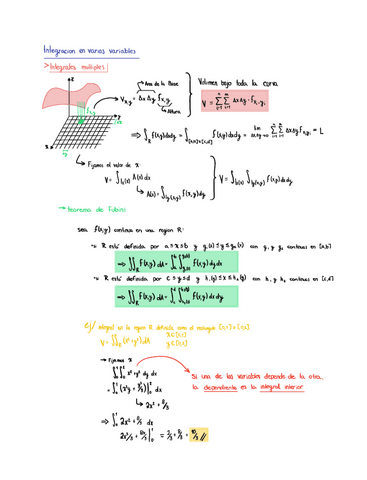 Integracion en varias variables
> Integrales multiples
Area de la Base
V_{x,y} = Δx Δy f_{x,y}
Altura
Volumen bajo toda la curva
V = Σ Σ Δx Δy · f_{xi,yi}
⇒ ∫_R f(x,y) dxdy = ∫_{[a,b]×[c,d]} f(x,y) dxdy = lim_{Δx,Δy→0} Σ Σ Δx Δy f_{xi,yi} = L
↳ Fijamos el valor de x:
V = ∫ A(x) dx
↳ A(x) = ∫ f(x,y) dy
→ teorema de Fubini
sea f(x,y) continua en una region R:
R está definida por a ≤ x ≤ b y g₁(x) ≤ y ≤ g₂(x) con g₁ y g₂ continuas en [a,b]
⇒ ∬_R f(x,y) dA = ∫_a^b ∫_{g₁(x)}^{g₂(x)} f(x,y) dy dx
R está definida por c ≤ y ≤ d y h₁(y) ≤ x ≤ h₂(y) con h₁ y h₂ continuas en [c,d]
⇒ ∬_R f(x,y) dA = ∫_c^d ∫_{h₁(y)}^{h₂(y)} f(x,y) dx dy
integral en la region R definida como el rectangulo
V = ∬_R (x²+y²) dA
→ Fijamos x
x² + y² dy dx
Si una de las variables depende de la otra...
la dependiente es la integral interior
↳ 2x² + 8/3
⇒ ∫_0^1 2x² + 8/3 dx
= 2/3 + 8/3 = 10/3 //